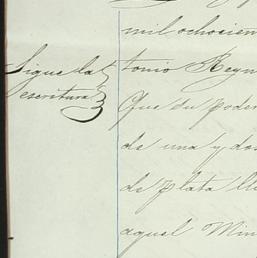 mil ochocien
Sigue la
tonio Reyn
escritura
Que su poder
de una y dos
de plata ll
aquel Min